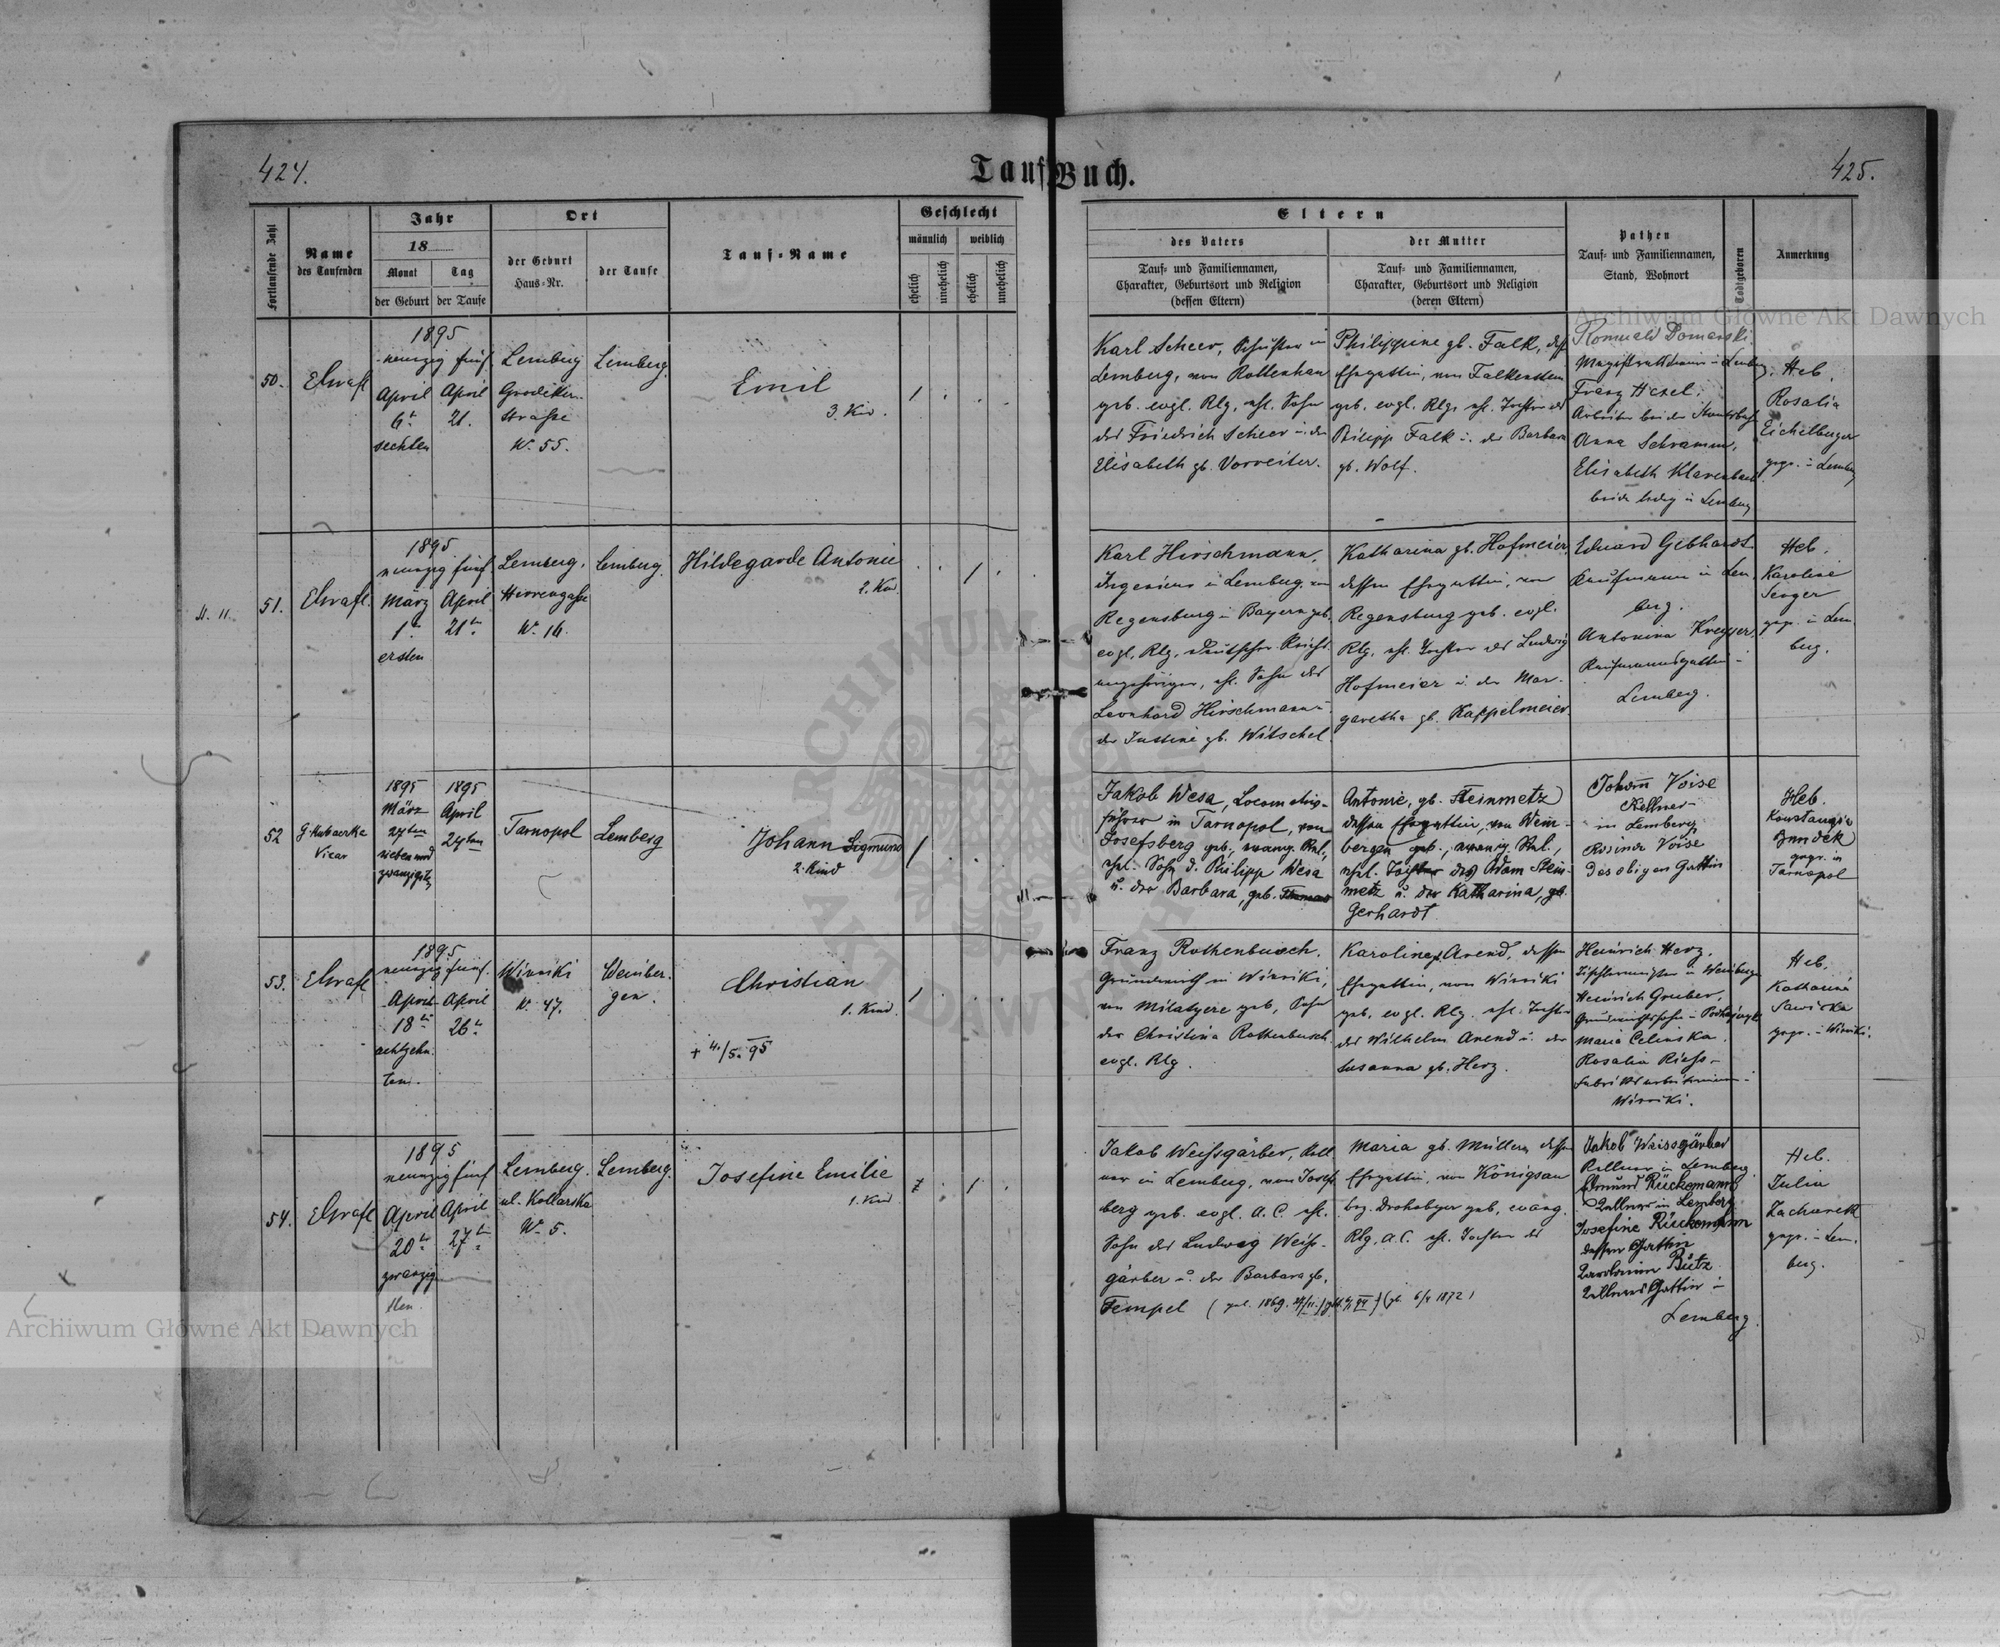 424.
Tauf-Buch.
425.
Fortlaufende Zahl
Name
des Taufenden
Jahr
18
Monat
Tag
der Geburt
der Taufe
Ort
der Geburt
Haus-Nr.
der Taufe
Tauf-Name
Geschlecht
männlich
weiblich
ehelich
unehelich
ehelich
unehelich
Eltern
des Vaters
Tauf- und Familiennamen,
Charakter, Geburtsort und Religion
(dessen Eltern)
der Mutter
Tauf- und Familiennamen,
Charakter, Geburtsort und Religion
(deren Eltern)
Pathen
Tauf- und Familiennamen,
Stand, Wohnort
Todtgeboren
Anmerkung
50.
1895
neunzig fünf
April
6t
sechsten
April
21.
Lemberg
Grodeker
strasse
N. 55.
Lemberg.
Emil
3. Kind.
1
Karl Scheer, Schuster in
Lemberg, von Rottenhan
geb. evgl. Rlg, ehl. Sohn
des Friedrich Scheer u. der
Elisabeth gb. Vorreiter.
Philippine gb. Falk, dess
Ehegattin, von Falkenstein
geb. evgl. Rlg. ehl. Tochter des
Philipp Falk u. der Barbara
gb. Wolf.
Romuald Domarski
Franz Hexel,
Arbeiter bei der
Anna Schramm,
Elisabeth
beide ledig in Lemberg
Heb.
Rosalia
Eichelberger
gepr. in Lemberg
51.
1895
neunzig fünf
März
1.
ersten
April
21tn
Lemberg.
Herrengasse
N. 16.
Lemberg.
Hildegarde Antonie
2. Kind.
1
Karl Hirschmann,
Ingenieur in Lemberg, von
Regensburg in Bayern geb.
evgl. Rlg, deutscher Reichs
angehöriger, ehl. Sohn des
Leonhard Hirschmann u.
der Justine gb. Witschel.
Katharina gb. Hofmeier
dessen Ehegattin, von
Regensburg geb. evgl.
Rlg, ehl. Tochter des Ludwig
Hofmeier u. der Mar-
garetha gb. Kappelmeier.
Eduard Gebhardt
Kaufmann in Lem
berg.
Antonina
Kaufmannsgattin in
Lemberg.
Heb.
Karoline
gepr. in Lem
berg.
52
Vicar
1895
März
27ten
sieben und
zwanzigste
1895
April
24ten
Tarnopol
Lemberg
Johann Sigmund
2. Kind
1
Jakob Wesa, Locomotiv-
führer in Tarnopol, von
Josefsberg geb., evang. Rel.,
ehl. Sohn d. Philipp Wesa
u. der Barbara, geb.
Antonie, gb. Steinmetz
dessen Ehegattin, von Wein-
bergen geb., evang. Rel.,
ehl. Tochter des Adam Stein-
metz u. der Katharina, gb.
Gerhardt
Johann Voise
Kellner
in Lemberg
Rosina Voise
des obigen Gattin
Heb.
Konstanzia
gepr. in
Tarnopol
53.
1895
neunzig fünf
April
18tn
achtzehn
ten.
April
26tn
Winniki
N. 47.
Weinber-
gen.
Christian
1. Kind.
+ 4./5. 95
1
Franz Rothenbusch,
Grundwirth in Winniki,
von geb, Sohn
der Christina Rothenbusch
evgl. Rlg.
Karoline gb. Arend, dessen
Ehegattin, von Winniki
geb, evgl. Rlg. ehl. Tochter
des Wilhelm Arend u. der
Susanna gb. Herz.
Heinrich Herz,
Tischlermeister in Weinbergen
Heinrich Gruber,
Maria Celinska,
Rosalia Riess
Fabriksarbeiterinnen in
Winniki.
Heb.
Katharina
Sawicka
gepr. in Winniki.
54.
1895
neunzig fünf
April
20tn
zwanzig
sten.
April
27tn
Lemberg.
ul. Kollarska
N. 5.
Lemberg.
Josefine Emilie
1. Kind
1
Jakob Weissgärber, Kell
ner in Lemberg, von Josefs
berg geb. evgl. A.C. ehl.
Sohn des Ludwig Weiss-
gärber u. der Barbara gb.
Tempel
Maria gb. Müller, dessen
Ehegattin, von Königsau
bez. Drohobycz geb, evang.
Rlg. A.C. ehl. Tochter der
(gb. 6/4 1872)
Jakob Weissgärber
Kellner in Lemberg
Edmund Rückemann
Kellner in Lemberg
Josefine Rückemann
dessen Gattin
Karoline Bütz
Kellners Gattin in
Lemberg.
Heb.
Julia
gepr. in Lem.
berg.
Archiwum Główne Akt Dawnych
Archiwum Główne Akt Dawnych